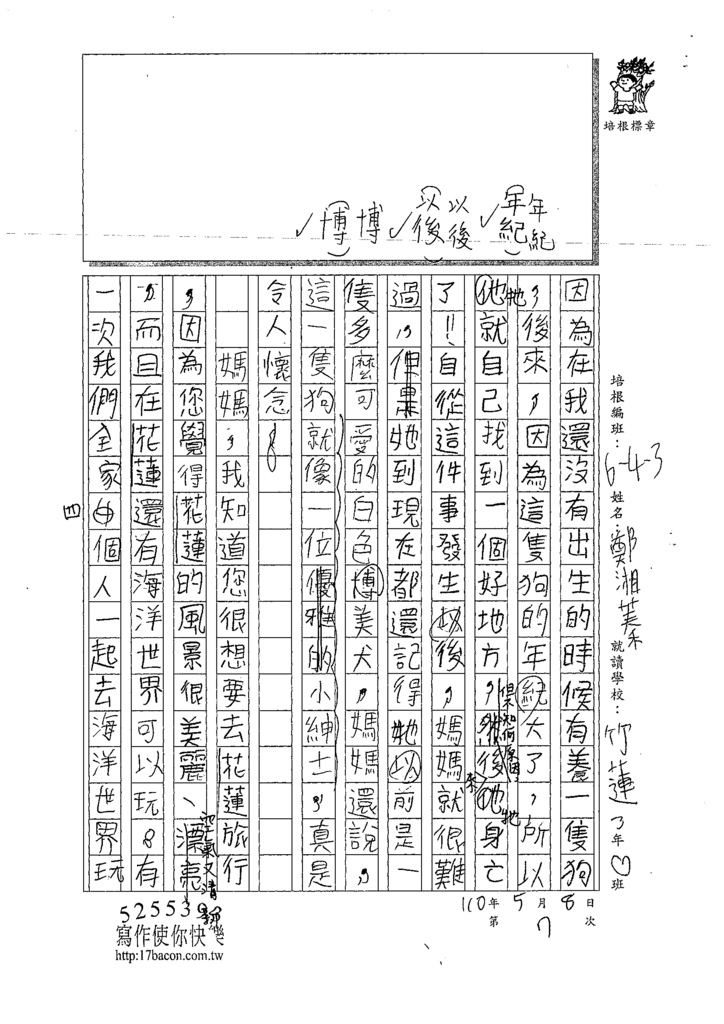 年年
紀紀
以以
後後
博博
培根標章
培根編班：6-4-3 姓名：鄭湘 就讀學校：竹蓮3年♡班
110年5月8日
第7次
因為在我還沒有出生的時候有養一隻狗
，後來，因為這隻狗的年紀大了，所以
牠就自己找到一個好地方，後來牠身亡
了！！自從這件事發生以後，媽媽就很難
過，但她到現在都還記得牠以前是一
隻多麼可愛的白色博美犬，媽媽還說，
這一隻狗就像一位優雅的小紳士，真是
令人懷念。
媽媽，我知道您很想要去花蓮旅行
，因為您覺得花蓮的風景很美麗、漂亮
，而且在花蓮還有海洋世界可以玩。有
一次我們全家四個人一起去海洋世界玩
空氣又清新
525539
寫作使你快樂
http:17bacon.com.tw/